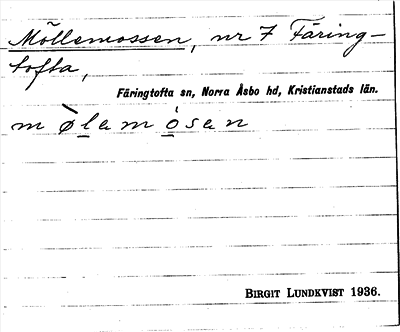 Möllemossen, nr 7 Färing-
tofta,
Färingtofta sn, Norra Åsbo hd, Kristianstads län.
m ø̀l̲a m ó̲s̲a n
BIRGIT LUNDKVIST 1936.